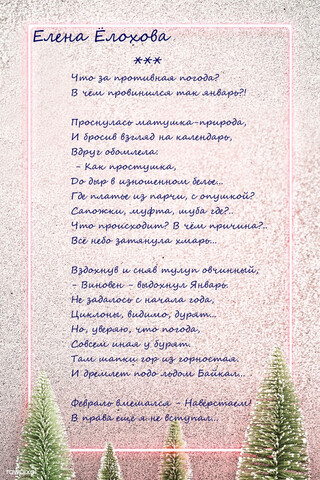 Елена Ёлохова
***
Что за противная погода?
В чём провинился так январь?!
Проснулась матушка-природа,
И бросив взгляд на календарь,
Вдруг обомлела:
- Как простушка,
До дыр в изношенном белье...
Где платье из парчи, с опушкой?
Сапожки, муфта, шуба где?..
Что происходит? В чём причина?..
Всё небо затянула хмарь...
Вздохнув и сняв тулуп овчинный,
- Виновен - выдохнул Январь.
Не задалось с начала года,
Циклоны, видимо, дурят...
Но, уверяю, что погода,
Совсем иная у бурят.
Там шапки гор из горностая.
И дремлет подо льдом Байкал...
Февраль вмешался - Наверстаем!
В права ещё я не вступал...
rawpixel